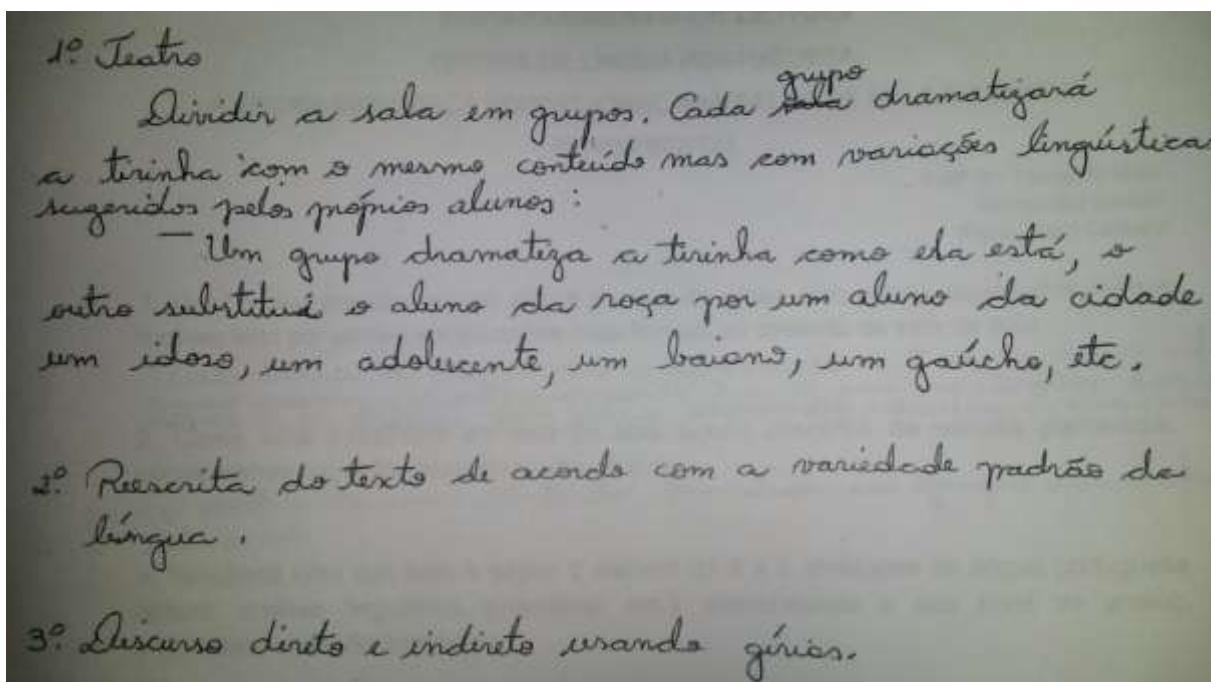 1º Teatro
Dividir a sala em grupos. Cada grupo dramatizará
a tirinha com o mesmo conteúdo mas com variações lingüísticas
sugeridos pelos próprios alunos:
— Um grupo dramatiza a tirinha como ela está, o
outro substitui o aluno da roça por um aluno da cidade
um idoso, um adolescente, um baiano, um gaúcho, etc.
2º Reescrita do texto de acordo com a variedade padrão da
língua.
3º Discurso direto e indireto usando gírias.